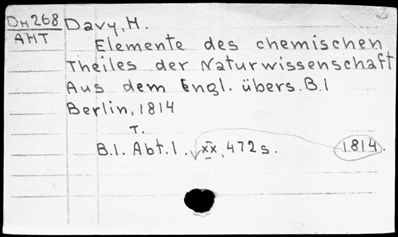 DH268 Davy, H.
AHT
Elemente des chemischen
Theiles der Naturwissenschaft
Aus dem Engl. übers. B.1
Berlin, 1814
T.
B.1. Abt.1. xx, 472 s. 1814.